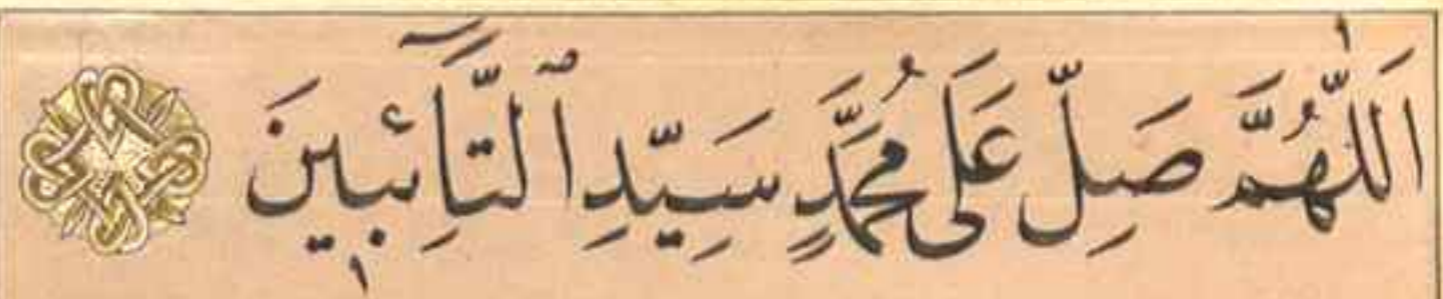 اَللّٰهُمَّ صَلِّ عَلَى مُحَمَّدٍ سَيِّدِ ٱلتَّآئِبِينَ